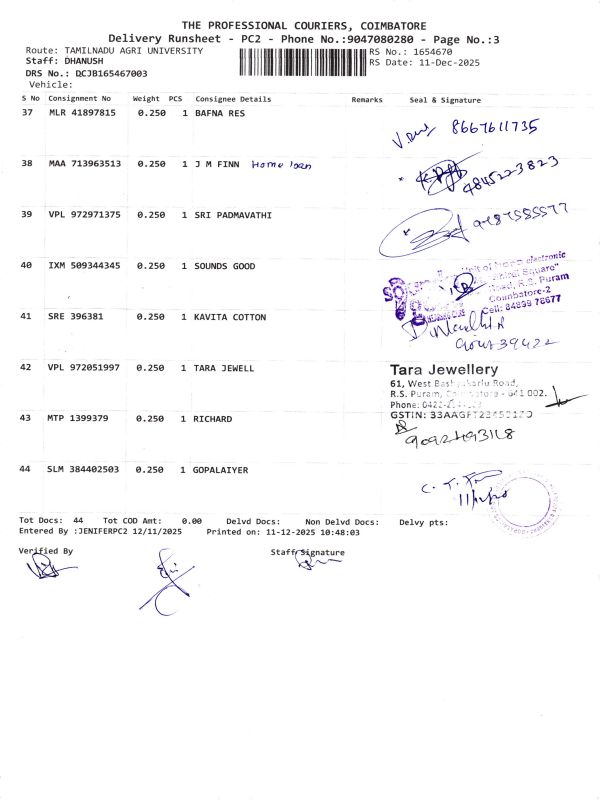 THE PROFESSIONAL COURIERS, COIMBATORE
Delivery Runsheet - PC2 - Phone No.:9047080280 - Page No.:3
Route: TAMILNADU AGRI UNIVERSITY
RS No.: 1654670
Staff: DHANUSH
RS Date: 11-Dec-2025
DRS No.: QCJB165467003
Vehicle:
S No Consignment No Weight PCS Consignee Details Remarks Seal & Signature
37 MLR 41897815 0.250 1 BAFNA RES
8667611735
38 MAA 713963513 0.250 1 J M FINN Home loan
39 VPL 972971375 0.250 1 SRI PADMAVATHI
40 IXM 509344345 0.250 1 SOUNDS GOOD
electronic
Square"
Road, R.S. Puram
Coimbatore-2
Cell: 84899 78677
41 SRE 396381 0.250 1 KAVITA COTTON
42 VPL 972051997 0.250 1 TARA JEWELL
Tara Jewellery
61, West Road,
R.S. Puram, - 641 002.
Phone:
GSTIN:
43 MTP 1399379 0.250 1 RICHARD
44 SLM 384402503 0.250 1 GOPALAIYER
Tot Docs: 44 Tot COD Amt: 0.00 Delvd Docs: Non Delvd Docs: Delvy pts:
Entered By :JENIFERPC2 12/11/2025 Printed on: 11-12-2025 10:48:03
Verified By Staff Signature